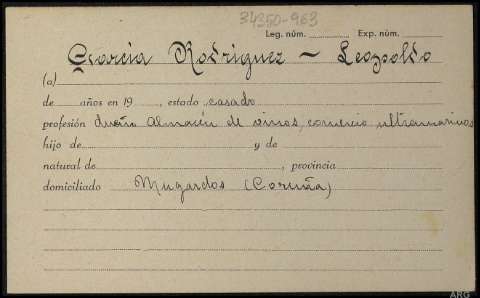 34350-963
Leg. núm. Exp. núm.
García Rodriguez - Leopoldo
(a)
de años en 19 , estado casado
profesión dueño almacén de vinos, comercio ultramarinos
hijo de y de
natural de , provincia
domiciliado Mugardos (Coruña)
ARG